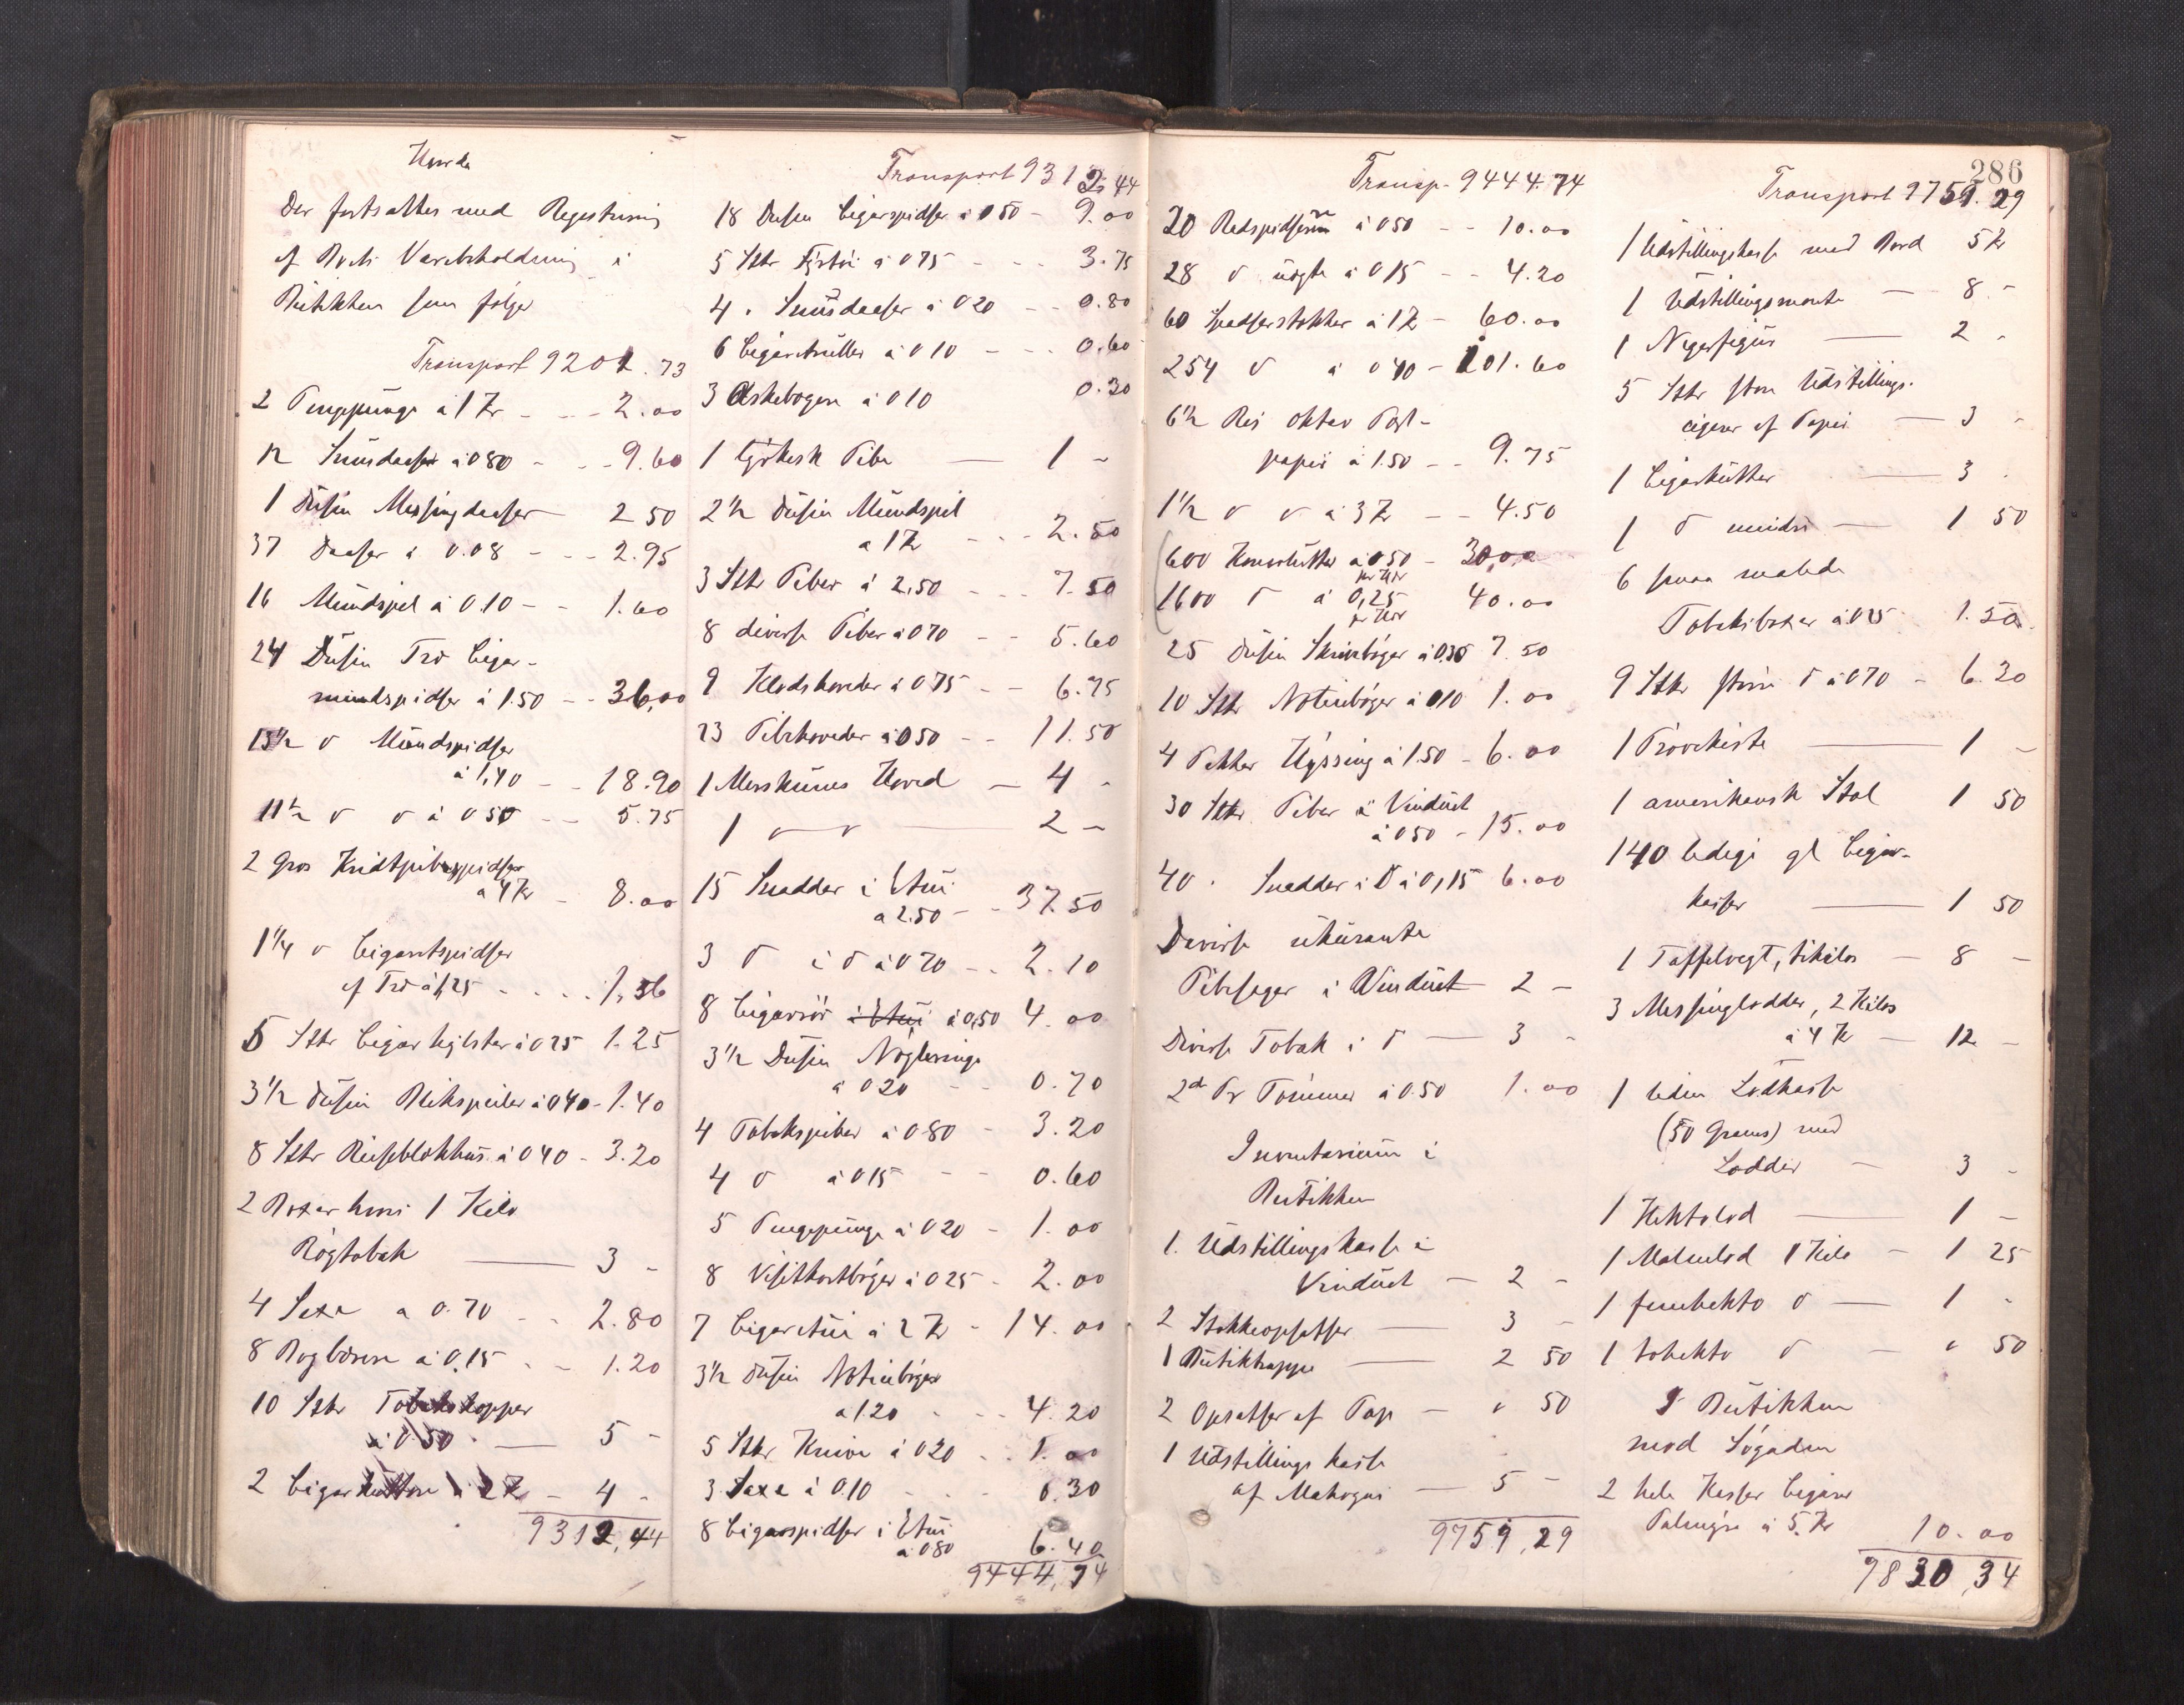 Der fortsattes med Registrering
af Boets Varebeholdning i
Butikken som følger
Transport 9201.73
2 Pengepunge à 1 Kr - - - 2.00
12 Snusdaaser à 0 80 - - - 9.60
1 Dusin Messingdaaser - 2 50
37 Daaser à 0.08 - - - 2.95
16 Mundspil à 0.10 - - 1.60
24 Dusin Træ Cigar-
mundspidser à 1.50 - - 36,00
13 1/2 v Mundspidser
à 1,40 - - 18.90
11 1/2 v v à 0 50 - - 5.75
2 Gros Kridtpibespidser
à 4 Kr - 8.00
1 1/4 v Cigaretspidser
af Træ à 1,25 - - - - 1,56
5 Stkr Cigarhylster à 0 25 1.25
3 1/2 Dusin à 0 40 - 1.40
8 Stkr à 0 40 - 3.20
2 Boxer hver 1 Kilo
Røgtobak — 3 -
4 Saxe a 0.70 - - 2.80
8 à 0,15 - - 1.20
10 Stkr Tobakskopper
à 0.50 - — 5 -
2 Cigarkuttere à 2 Kr - 4 -
9312,44
Transport 9312,44
18 Dusin Cigarspidser à 0 50 - 9.00
5 Stkr Fyrtøi à 0 75 - - - 3.75
4 . Snusdaaser à 0 20 - - 0.80
6 à 0 10 - - - 0.60
3 Askebægere à 0 10 0.30
1 tyrkisk Pibe — 1 -
2 1/2 Dusin Mundspil
a 1 Kr - - - 2.50
3 Stkr Piber à 2,50 - - - 7.50
8 diverse Piber à 0 70 - - 5.60
9 à 0 75 - - 6.75
23 Pibehoveder à 0 50 - - 11.50
1 Merskums Hoved — 4 -
1 v v — 2 -
15 Snadder i Etui
a 2.50 - - 37.50
3 v i v à 0 70 - - 2.10
8 Cigarrør i Etui à 0,50 4.00
3 1/2 Dusin Nøgleringe
à 0 20 - - 0.70
4 Tobakspiber à 0 80 - 3.20
4 v à 0 15 - - 0.60
5 Pengepunge à 0 20 - 1.00
8 Visitkortbøger à 0 25 - 2.00
7 Cigaretui à 2 Kr - 14.00
3 1/2 Dusin Notisbøger
a 1.20 - - - 4.20
5 Stkr Knive à 0 20 - - 1.00
3 Saxe à 0.10 - - - 0.30
8 Cigarspidser i Etui
a 0 80 6.40
9444,74
Transp. 9444.74
20 à 0 50 - - 10.00
28 v à 0 15 - - 4.20
60 Spadserstokker à 1 Kr - 60.00
254 v à 0 40 - 101.60
6 1/2 Ris oktav Post-
papir à 1.50 - - 9.75
1 1/2 v v à 3 Kr - - 4.50
600 Konvolutter à 0 50 - 30,00
1600 v à 0,25 40.00
25 Dusin Skrivebøger à 0.30 7.50
10 Stkr Notisbøger à 0 10 1.00
4 Pakker Hyssing à 1.50 - 6.00
30 Stkr Piber i Vinduet
à 0 50 - 15.00
40 . Snadder i v à 0,15 6.00
Diverse ukurante
Pibesager i Vinduet 2 -
Diverse Tobak i v — 3 -
2 Pr Tømmer à 0.50 1.00
Inventarium i
Butikken
1. Udstillingskasse i
Vinduet — 2 -
2 Stokkeopsatser — 3 -
1 Butiktrappe — 2 50
2 Opsatser af Pap — v 50
1 Udstillings kasse
af Mahogni — 5 -
9759,29
286
Transport 9759.29
1 Udstillingskasse med Bord 5 Kr
1 Udstillingsmonte — 8 -
1 Negerfigur — 2 -
5 Stkr store Udstillings-
cigarer af Papir — 3 -
1 Cigarkutter — 3 -
1 v mindre — 1 50
6 smaa malede
Tobaksboxer à 0 25 1.50
9 Stkr større v à 0 70 - 6.30
1 Prøvekiste — 1 -
1 amerikansk Stol 1 50
140 ledige gl Cigar-
kasser — 1 50
1 Taffelvegt, tikilos — 8 -
3 Messinglodder, 2 Kilos
à 4 Kr — 12 -
1 liden Lodkasse
(50 Grams) med
Lodder — 3 -
1 Hektolod — 1 -
1 Malmlod 1 Kilo — 1 25
1 femhekto v — 1 -
1 tohekto v - v 50
I Butikken
mod Søgaden
2 hele Kasser Cigarer
à 5 Kr 10.00
9830,34